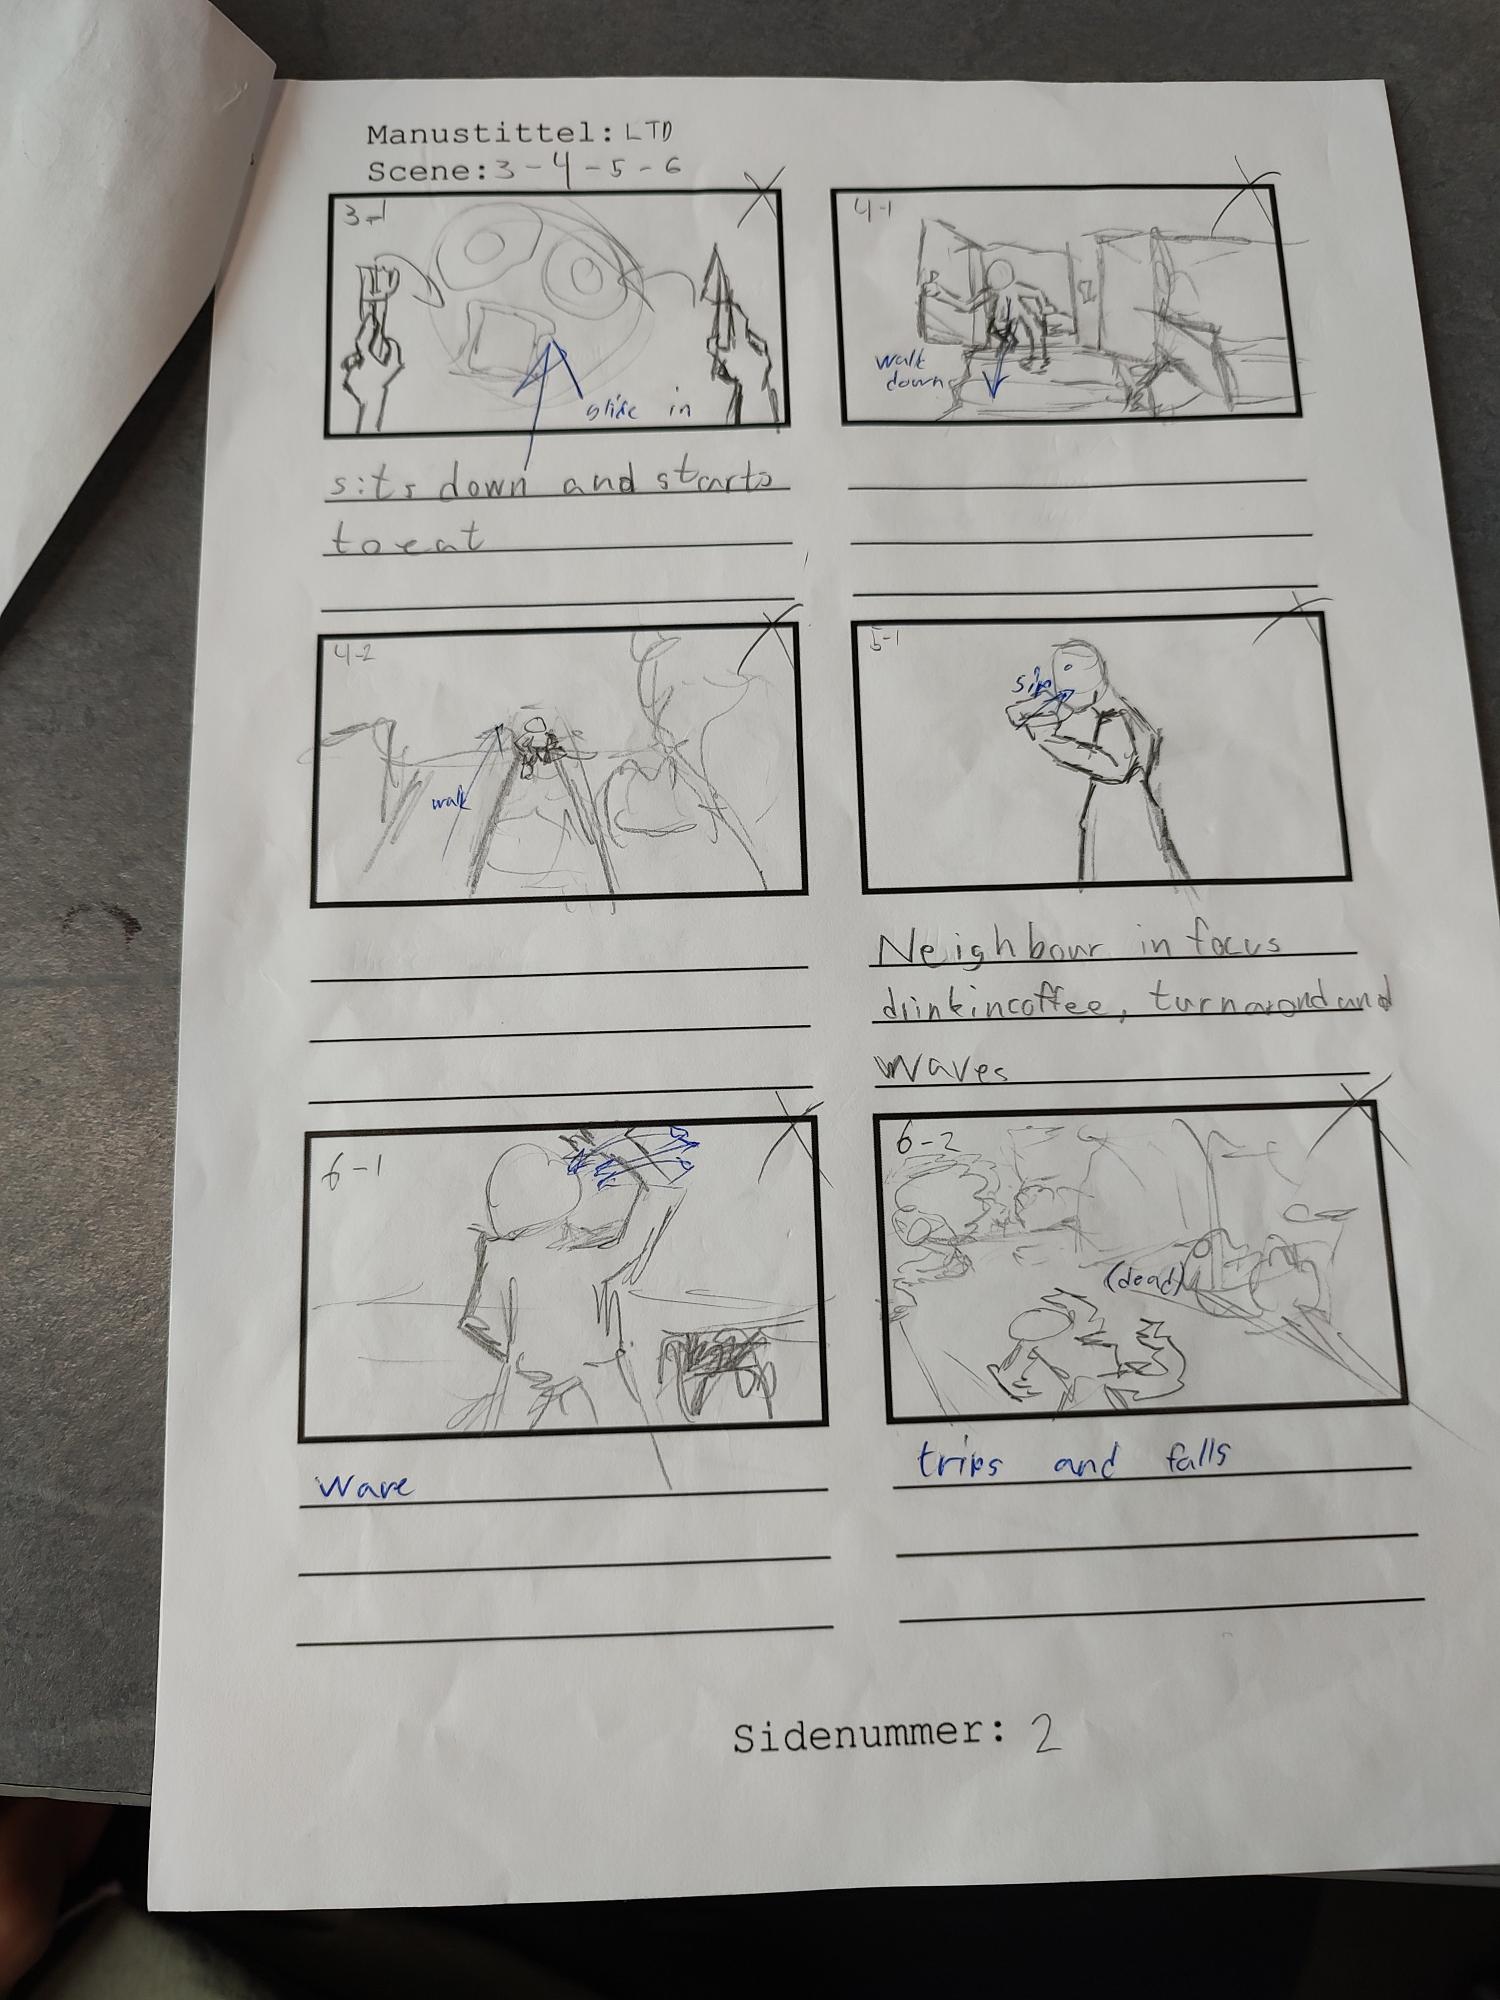 Manustittel: LTD
Scene: 3-4-5-6
3-1
glide in
sits down and starts
to eat
4-1
walk
down
4-2
walk
5-1
sip
Neighbour in focus
drinkincoffee, turnarondand
waves
6-1
Wave
6-2
(dead)
trips and falls
Sidenummer: 2